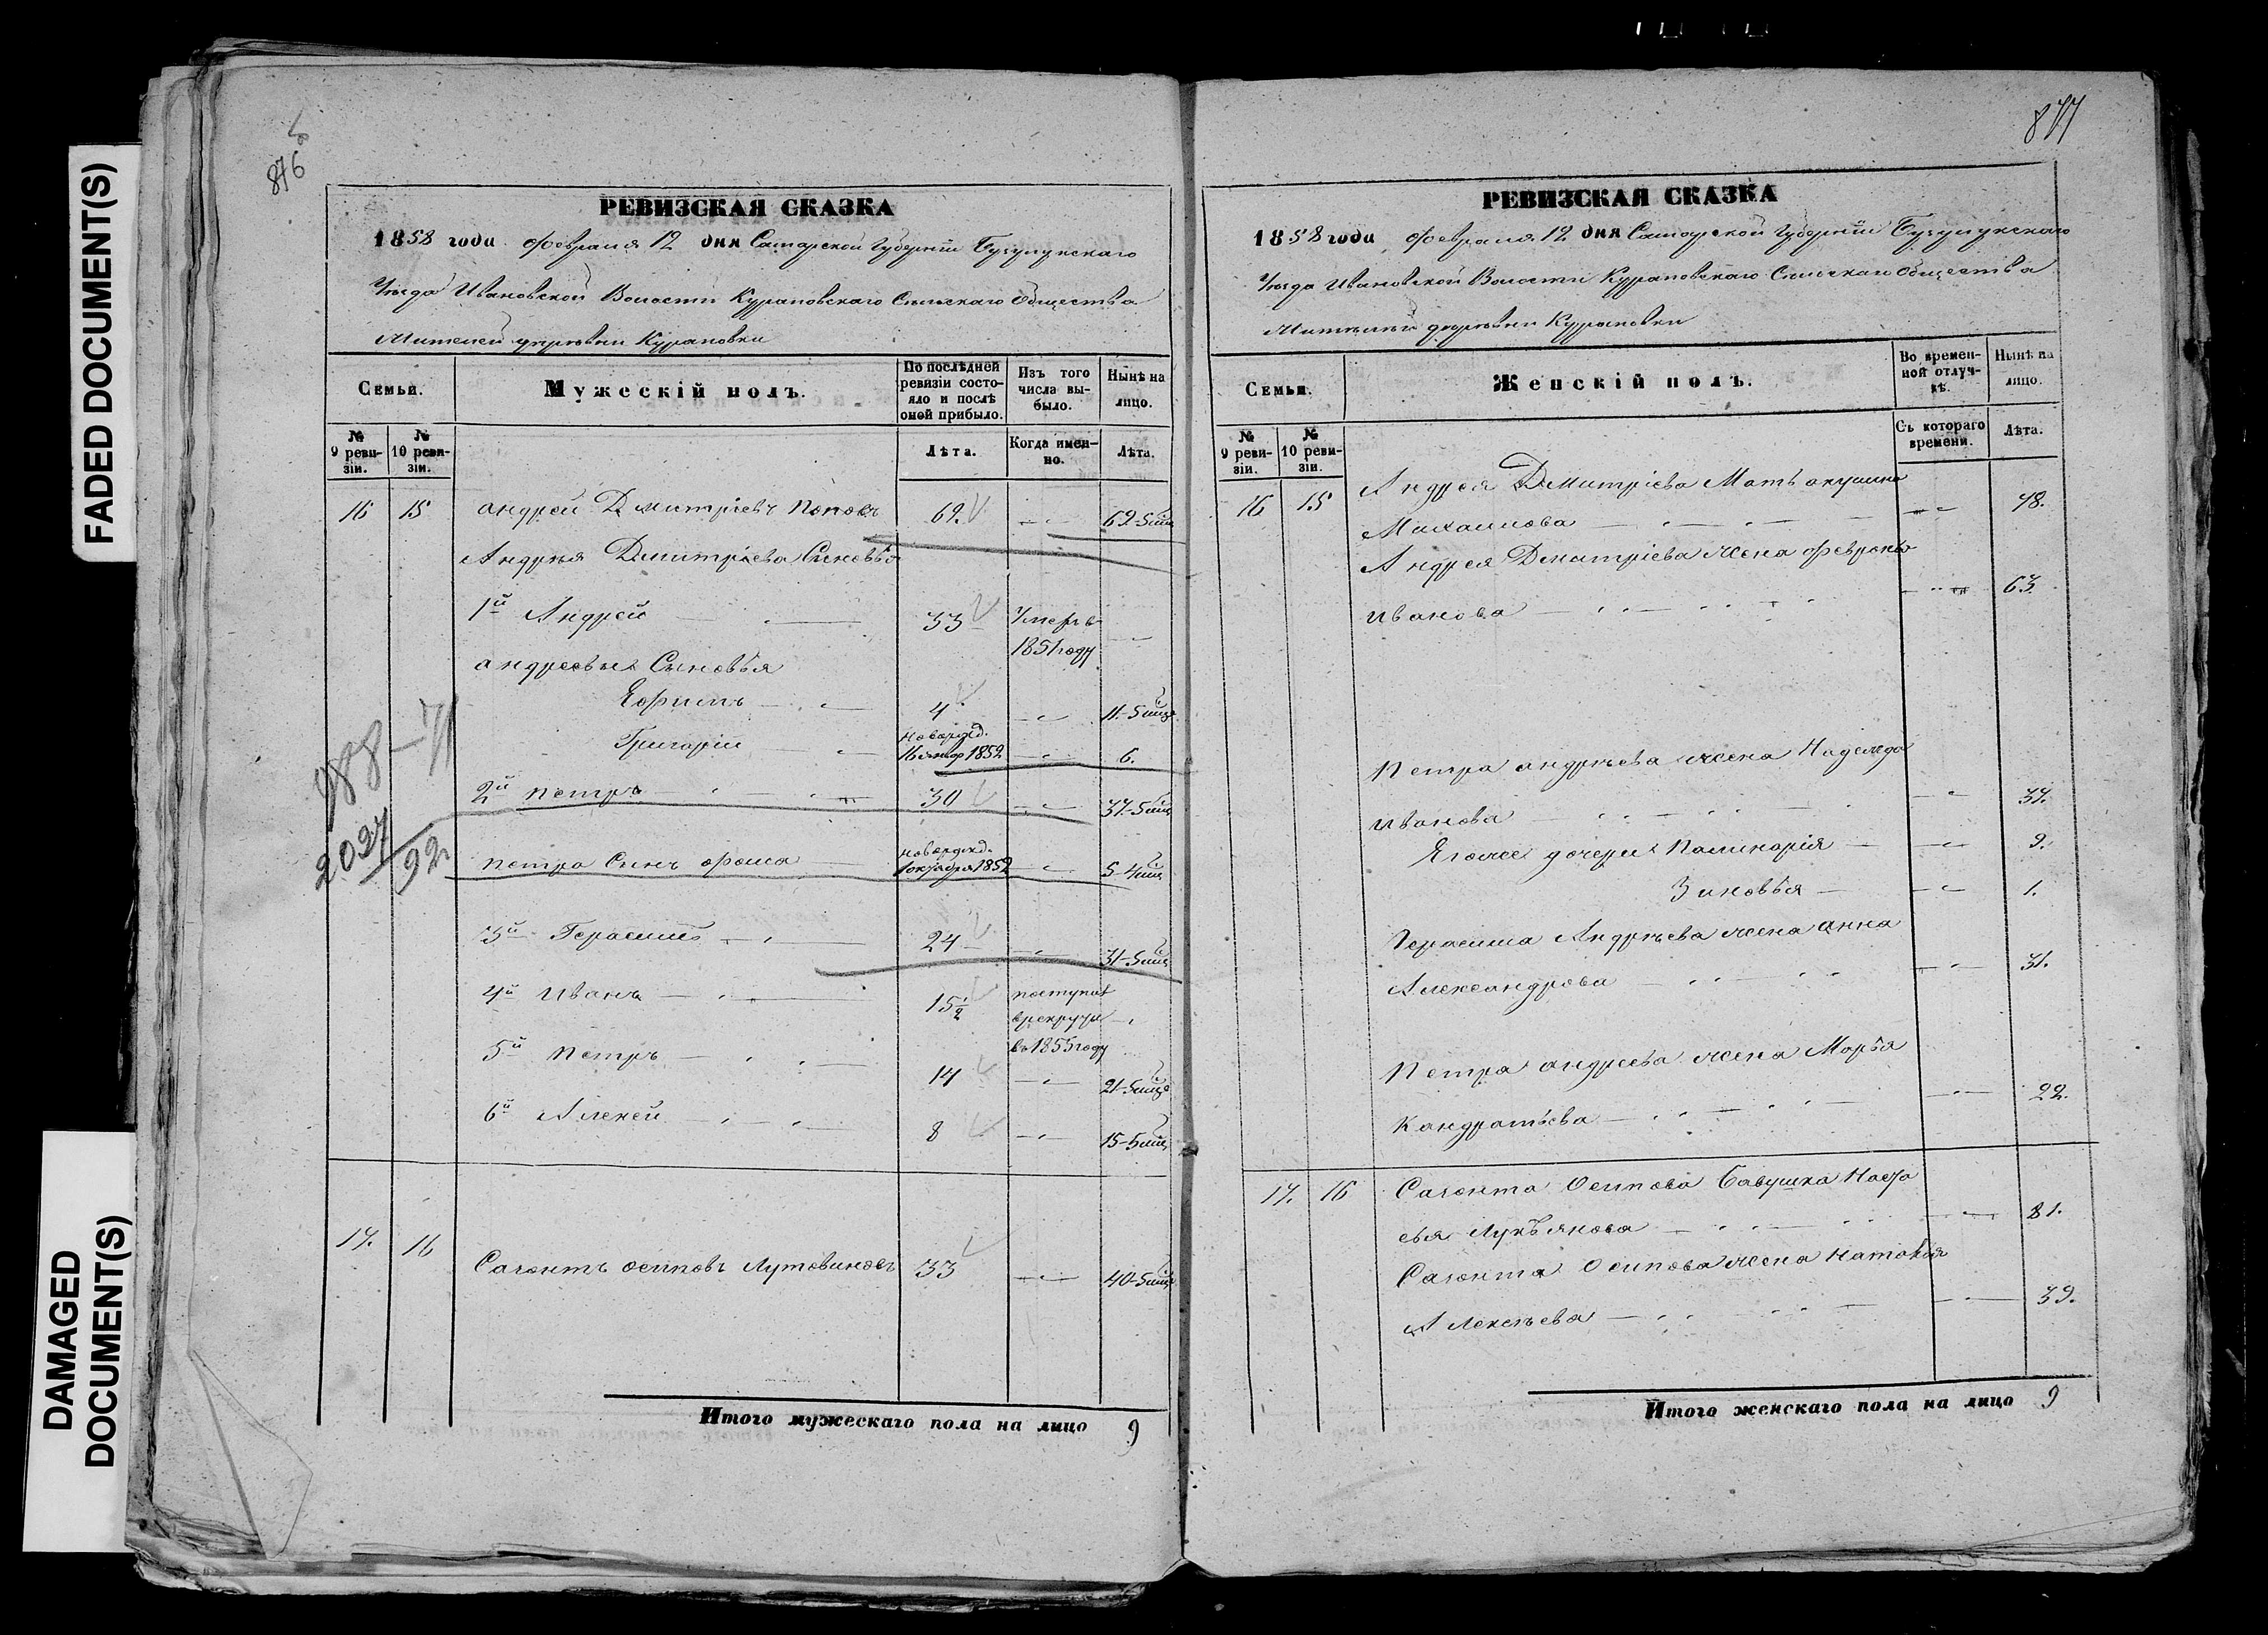 FADED DOCUMENT(S)
DAMAGED
DOCUMENT(S)
876
РЕВИЗСКАЯ СКАЗКА
1858 года февраля 12 дня Самарской Губернии Бузулукскаго
Уѣзда Ивановской Волости Курановскаго Сельскаго общества
Жителей деревни Курановки
Семьи.
Мужескій полъ.
По послѣдней ревизіи состояло и послѣ оной прибыло.
Изъ того числа выбыло.
Нынѣ на лицо.
№ 9 ревизіи.
№ 10 ревизіи.
Лѣта.
Когда именно.
Лѣта.
16 15 Андрей Дмитріевъ Поповъ 62. 69-5 мѣс
Андрѣя Дмитріева Сыновья
1й Андрей 33 Умеръ в
1851 году
Андреевы Сыновья
Ефимъ 4 11-5 мѣс
Григорій новорожд. 1852 6.
2й Петръ 30 37-5 мѣс
Петра Сынъ Фома новорожд. 1 октября 1852 5-4 мѣс
3й Герасимъ 24 31-5 мѣс
4й Иванъ 15½ поступил
в рекруты
въ 1855 году
5й Петръ 14 21-5 мѣс
6й Алексей 8 15-5 мѣс
188-71
2027
92
17. 16 Саѳонтъ Осиповъ Лутовиновъ 33 40-5 мѣс
Итого мужескаго пола на лицо 9
877
РЕВИЗСКАЯ СКАЗКА
1858 года февраля 12 дня Самарской Губернии Бузулукскаго
Уѣзда Ивановской Волости Курановскаго Сельскаго Общества
Жителей деревни Курановки
Семьи.
Женскій полъ.
Во временной отлучкѣ.
Нынѣ на лицо.
№ 9 ревизіи.
№ 10 ревизіи.
Съ котораго времени.
Лѣта.
16 15 Андрея Дмитріева Мать акулина
Михаилова 78.
Андрея Дмитріева жена февронья
Иванова 63.
Петра андрѣева жена Надежда
Иванова 37.
Егоже дочери Палинарія 9.
Зиновья 1.
Герасима Андрѣева жена Анна
Александрова 31.
Петра андреева жена Марья
Кандратьева 22.
17. 16 Саѳонта Осипова бабушка Наста
сья Лукъянова 81.
Саѳонта Осипова жена Наталья
Алексѣева 39.
Итого женскаго пола на лицо 9